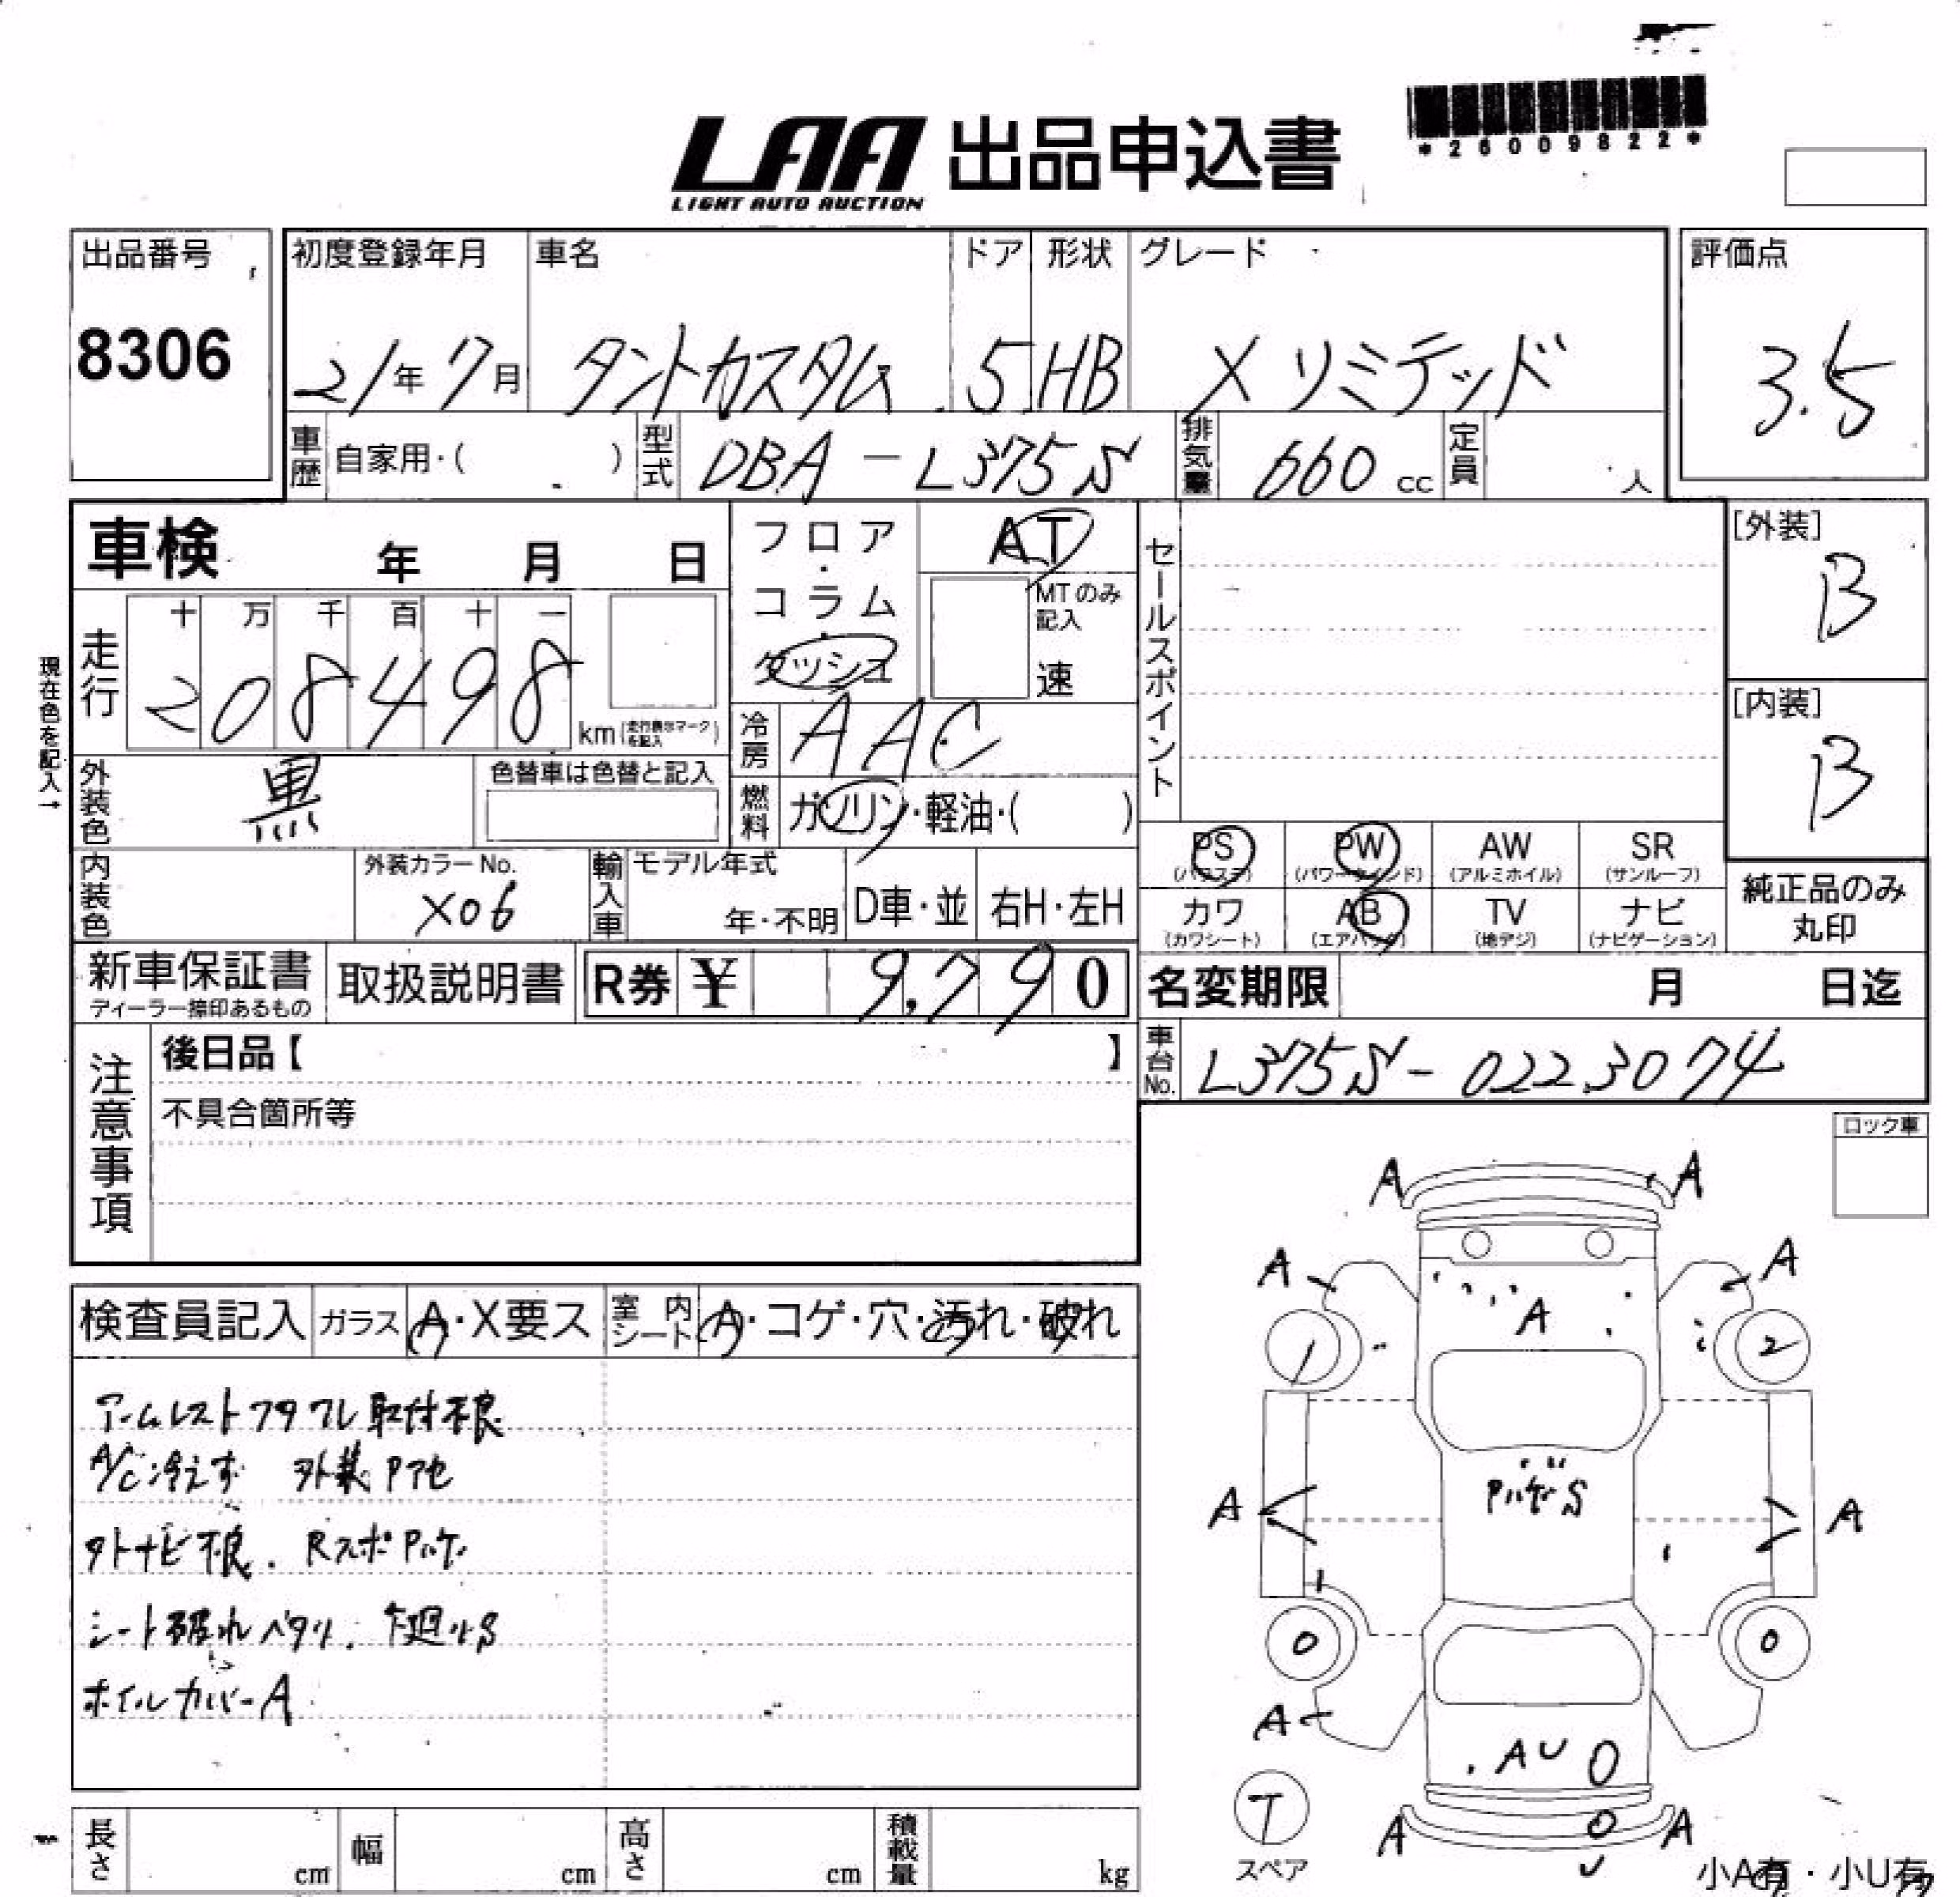 *26009822*
LAA 出品申込書
LIGHT AUTO AUCTION
出品番号 初度登録年月 車名 ドア 形状 グレード 評価点
8306 21年7月 タントカスタム 5 HB Xリミテッド 3.5
車歴 自家用・( ) 型式 DBA-L375S 排気量 660cc 定員 人
車検 年 月 日
フロア・コラム・ダッシュ AT
MTのみ記入
速
セールスポイント
[外装]
B
[内装]
B
現在色を記入→
走行 十 万 千 百 十 一
208498 km(走行表示マークを記入)
冷房 AAC
外装色 黒 色替車は色替と記入
燃料 ガソリン・軽油・( )
PS AW SR
PW
(パワステ) (パワーウインド) (アルミホイル) (サンルーフ)
カワ AB TV ナビ
(カワシート) (エアバッグ) (地デジ) (ナビゲーション)
純正品のみ
丸印
内装色 外装カラーNo. X06
輸入車 モデル年式 年・不明 D車・並 右H・左H
新車保証書 取扱説明書 R券 ¥ 9,790
ディーラー捺印あるもの
名変期限 月 日迄
注意事項
後日品【 】
車台No. L375S-0223074
不具合箇所等
ロック車
検査員記入 ガラス A・X要ス 室内シート A・コゲ・穴・汚れ・破れ
アームレストフタワレ取付不良
A/C冷えず 外装Pアセ
タトナビ不良. RスポPハゲ
シート破れヘタリ. 下廻りS
ホイルカバーA
A A
A A
A
1 2
PハゲS
A A
0 0
A
AU
T
A A
U
スペア
小A有・小U有
長さ cm 幅 cm 高さ cm 積載量 kg